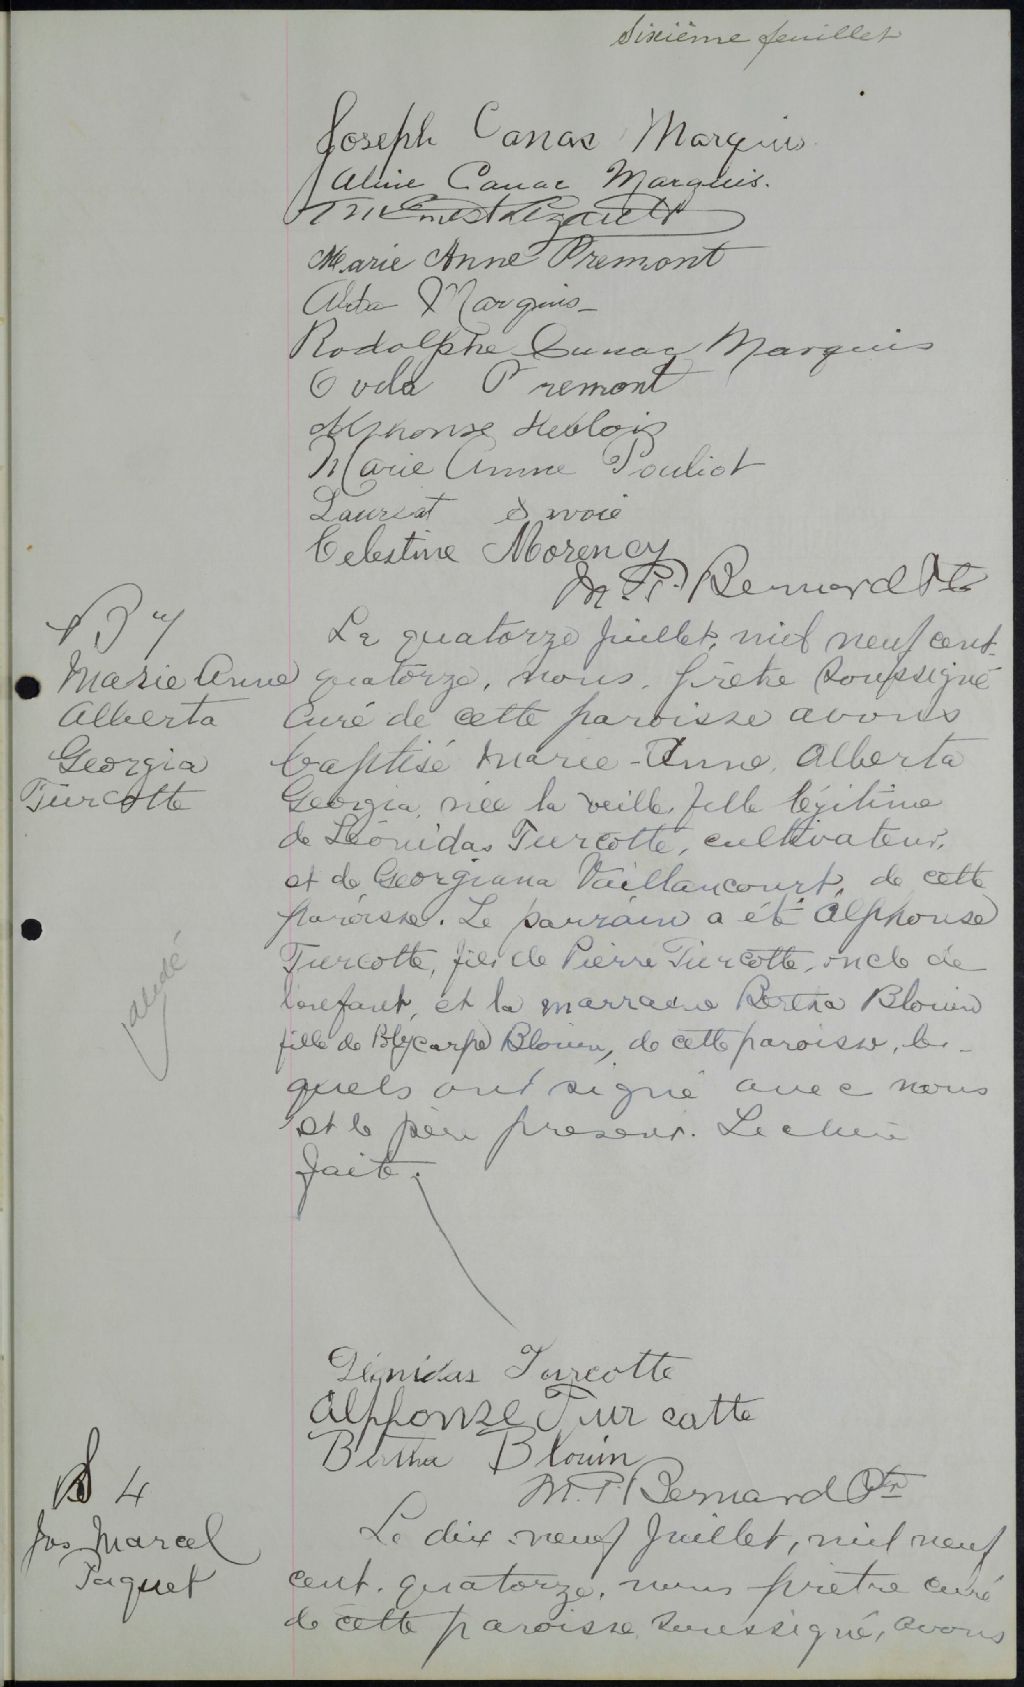 Sixième feuillet
Joseph Canac Marquis
Aline Canac Marquis.
Marie Anne Premont
Alda Marquis
Rodolphe Canac Marquis
Ovila Premont
Alphonse Deblois
Marie Anne Pouliot
Lauréat Savoie
Celestine Morency
M. P. Bernard Ptre
B 7
Marie Anne
Alberta
Georgia
Turcotte
Le quatorze Juillet, mil neuf cent-
quatorze, nous, prêtre soussigné
Curé de cette paroisse avons
baptisé Marie-Anne, Alberta
Georgia, née la veille, fille légitime
de Léonidas Turcotte, cultivateur,
et de Georgiana Vaillancourt, de cette
paroisse. Le parrain a été Alphonse
Turcotte, fils de Pierre Turcotte, oncle de
l'enfant, et la marraine Bertha Blouin
fille de Polycarpe Blouin, de cette paroisse, les-
quels ont signé avec nous
et le père présent. Lecture
faite.
Léonidas Turcotte
Alphonse Turcotte
Bertha Blouin
M. P. Bernard Ptre
4
Jos Marcel
Paquet
Le dix-neuf Juillet, mil neuf
cent-quatorze, nous prêtre curé
de cette paroisse soussigné, avons